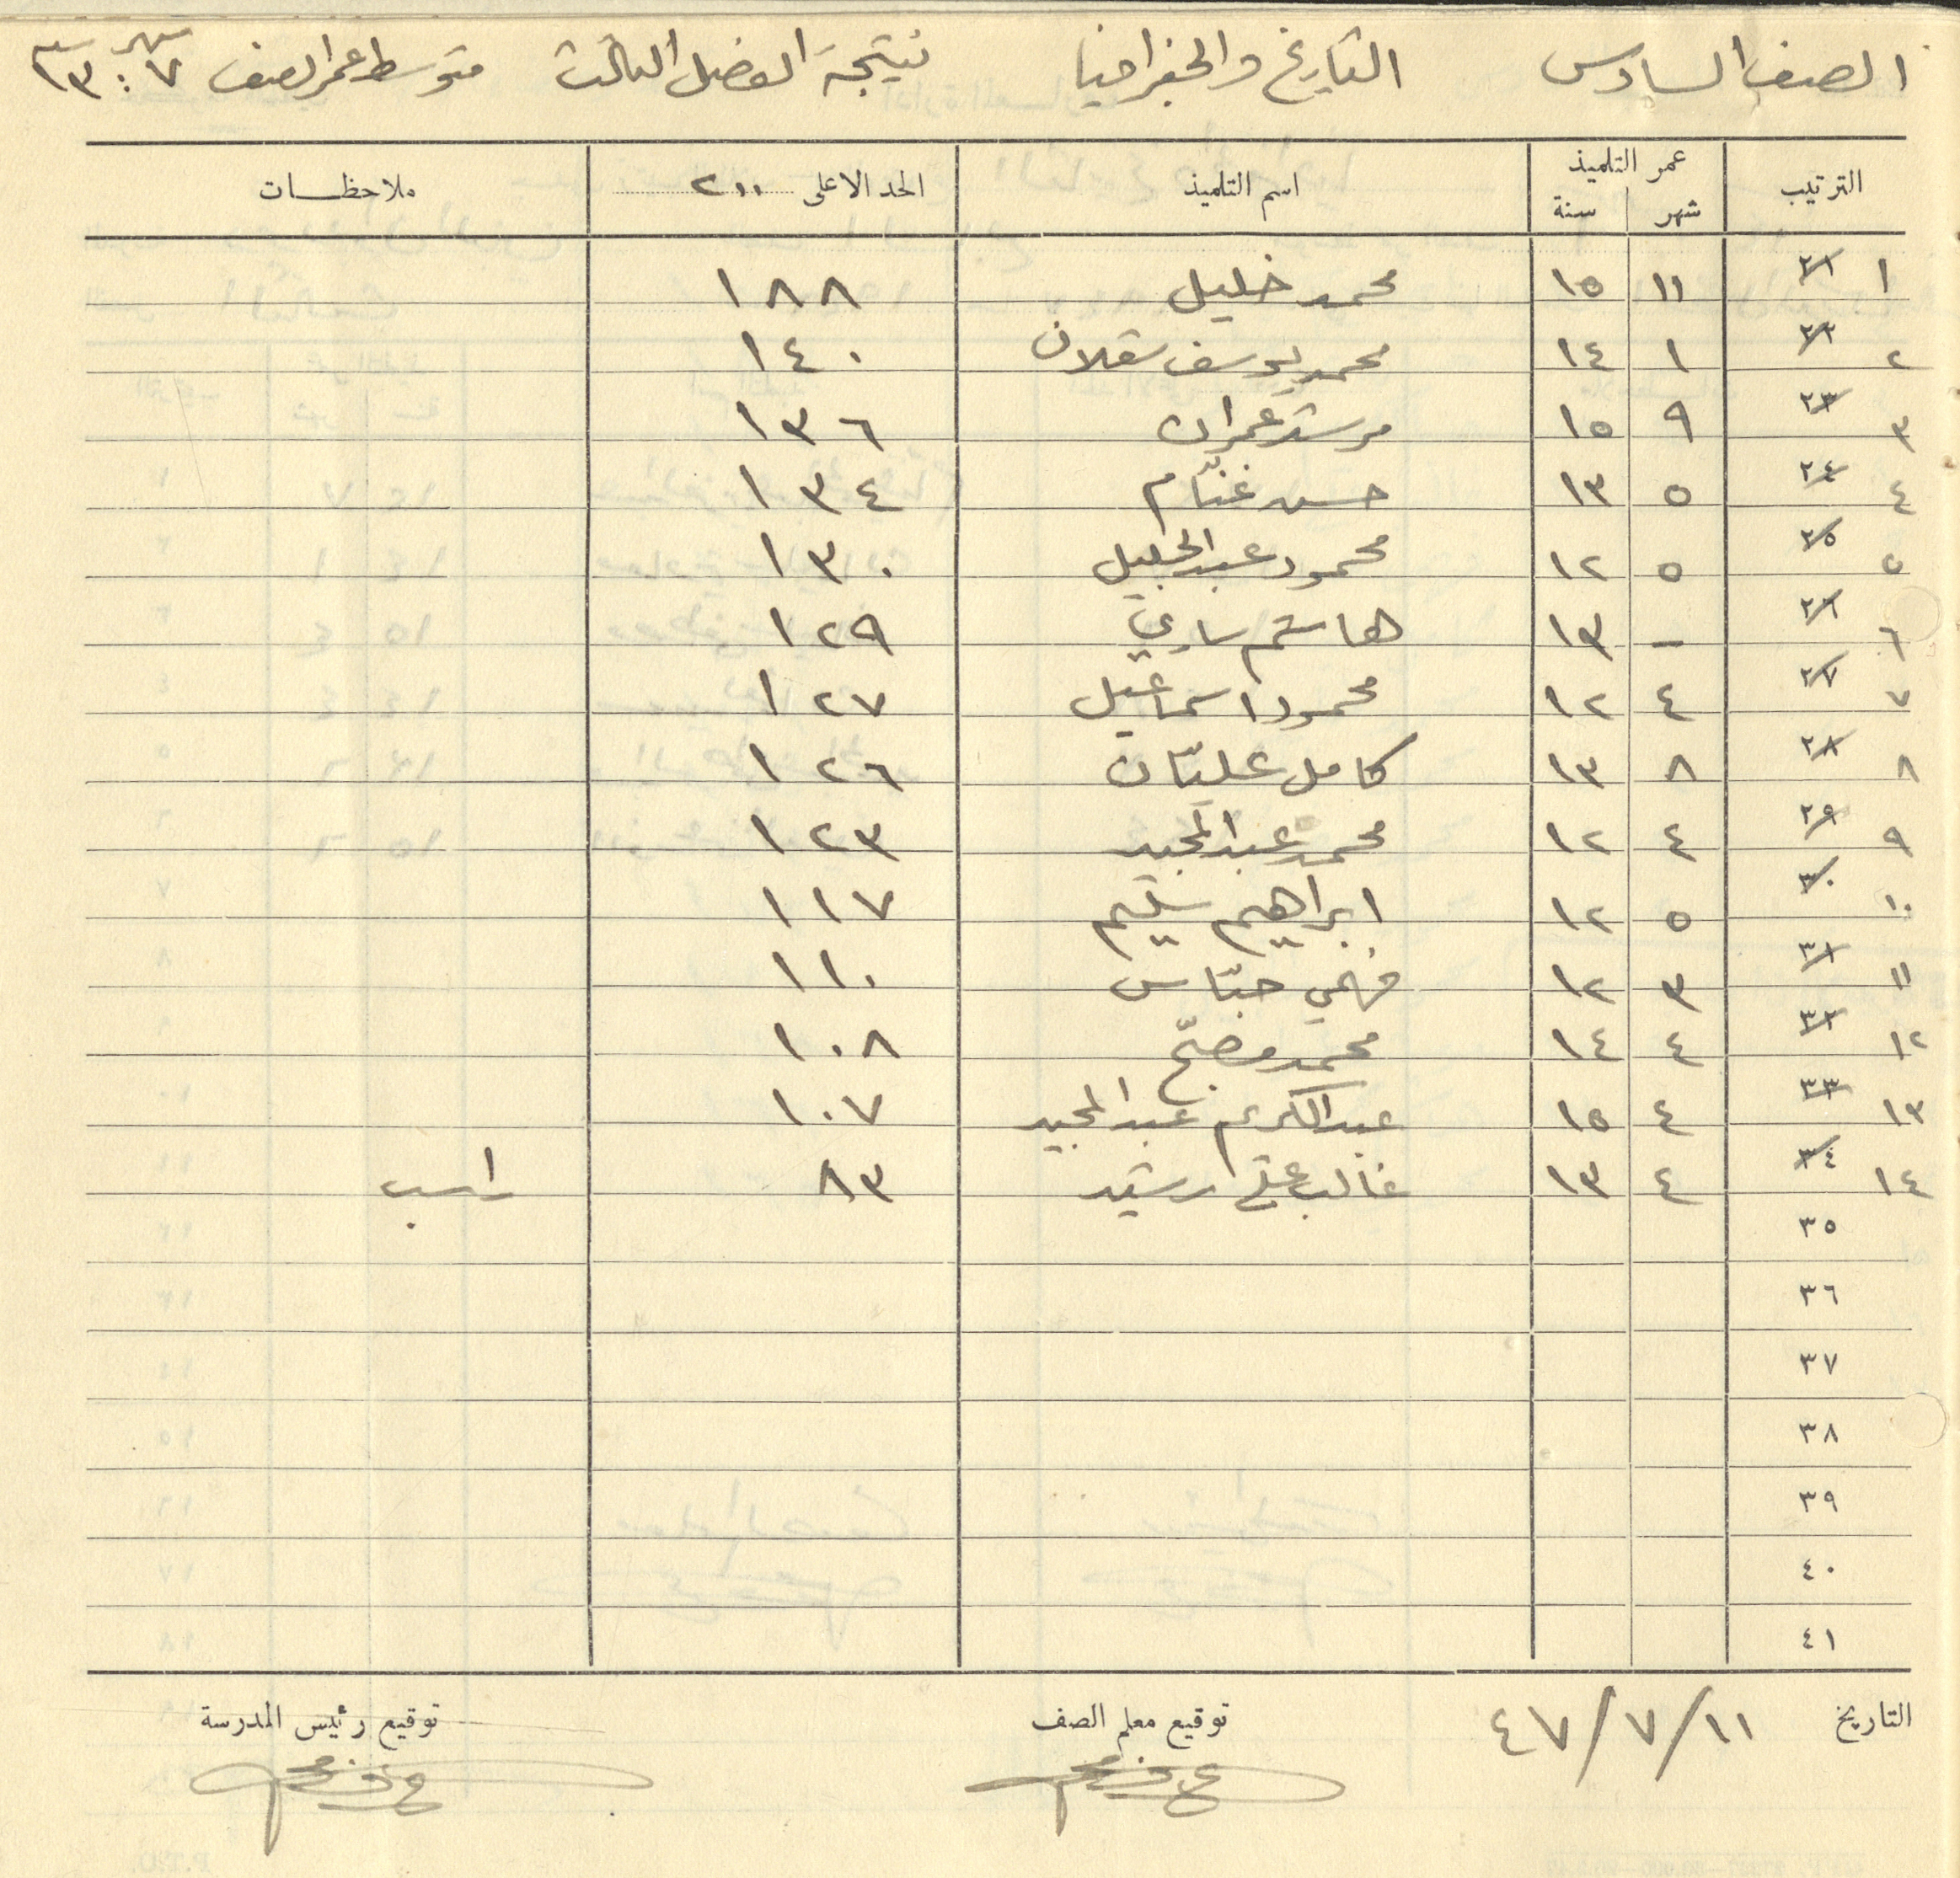 الصف السادس التاريخ والجغرافيا نتيجة الفصل الثالث متوسط عمر الصف ٧ : ١٣
شهر سنة
الترتيب عمر التلميذ اسم التلميذ الحد الاعلى ٢٠٠ ملاحظات
شهر سنة
١ ٢١ ١١ ١٥ محمد خليل ١٨٨
٢ ٢٢ ١ ١٤ محمد يوسف سقلان ١٤٠
٣ ٢٣ ٩ ١٥ مرشد عمران ١٣٦
٤ ٢٤ ٥ ١٣ حسن غنّام ١٣٤
٥ ٢٥ ٥ ١٢ محمود عبد الجليل ١٣٠
٦ ٢٦ – ١٣ هاشم ساري ١٢٩
٧ ٢٧ ٤ ١٢ محمود اسماعيل ١٢٧
٨ ٢٨ ٨ ١٣ كامل عليّان ١٢٦
٩ ٢٩ ٤ ١٢ محمد عبد المجيد ١٢٣
١٠ ٣٠ ٥ ١٢ ابراهيم سليم ١١٧
١١ ٣١ ٣ ١٢ فهمي حبّاس ١١٠
١٢ ٣٢ ٤ ١٤ محمد مصبّح ١٠٨
١٣ ٣٣ ٤ ١٥ عبد الكريم عبد المجيد ١٠٧
١٤ ٣٤ ٤ ١٣ غالب رشيد ٨٣ راسب
٣٥
٣٦
٣٧
٣٨
٣٩
٤٠
٤١
التاريخ ١١/٧/٤٧ توقيع معلم الصف توقيع رئيس المدرسة